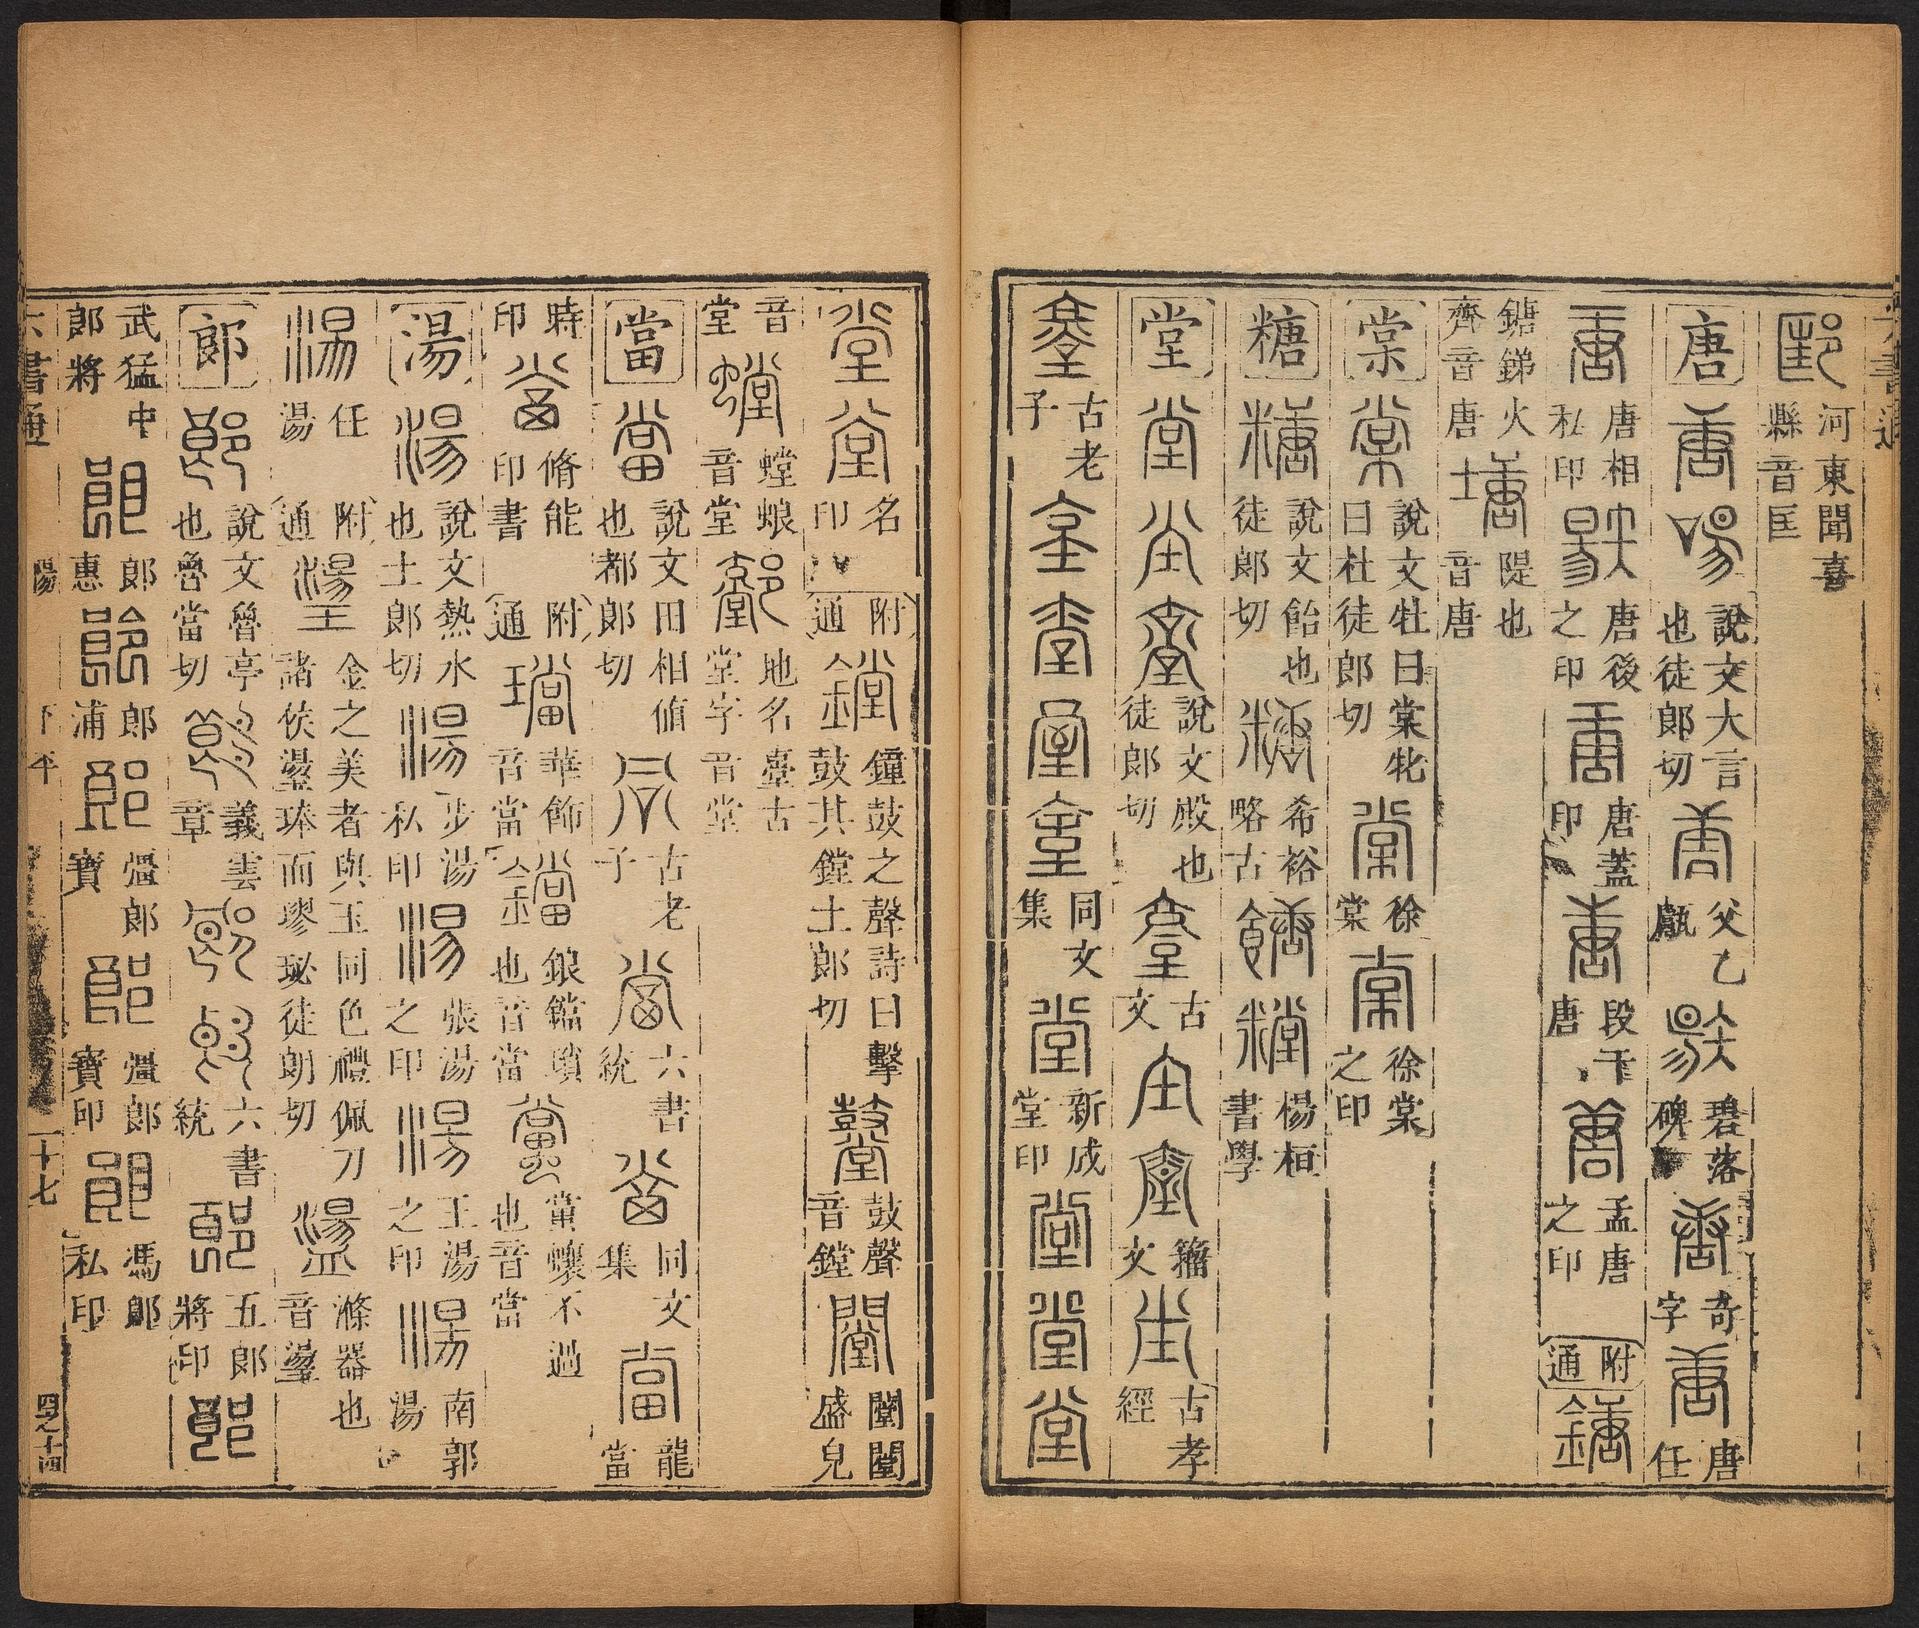 河東聞喜縣音匡
唐 說文大言也徒郎切 父乙甗 碧落碑 奇字 唐任
唐相私印 唐後之印 唐蓋印 段干唐 孟唐之印 附通 鎕
鎕銻火齊音唐 隄也音唐
棠 說文牡曰棠牝曰杜徒郎切 徐棠 徐棠之印
糖 說文飴也徒郎切 希裕略古 楊桓書學
堂 說文殿也徒郎切 古文 籀文 古孝經
古老子 同文集 新成堂印
名印 附通 鏜 鐘鼓之聲詩曰擊鼓其鏜土郎切 鼓聲音鏜 闛闛盛皃
音堂 螳螂音堂 地名臺古堂字音堂
當 說文田相値也都郎切 古老子 六書統 同文集 龍當
時印 脩能印書 附通 璫 華飾音當 銀鐺瑣也音當 當蠰不過也音當
湯 說文熱水也土郎切 步湯私印 張湯之印 王湯之印 南郭湯
任湯 附通 金之美者與玉同色禮佩刀諸侯璗琫而璆珌徒朗切 滌器也音盪
郎 說文魯亭也魯當切 義雲章 六書統 五郎將印
武猛中郎將 郎惠 郎浦 彊郎寶 彊郎寶印 馮郎私印
六書通 陽 下平 十七 四之十四